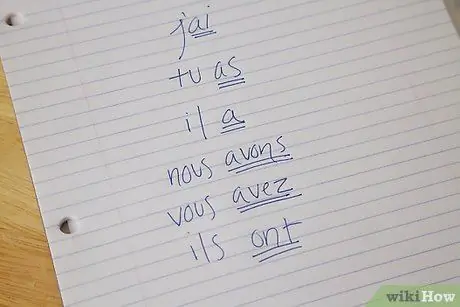 j'ai
tu as
il a
nous avons
vous avez
ils ont
wikiHow